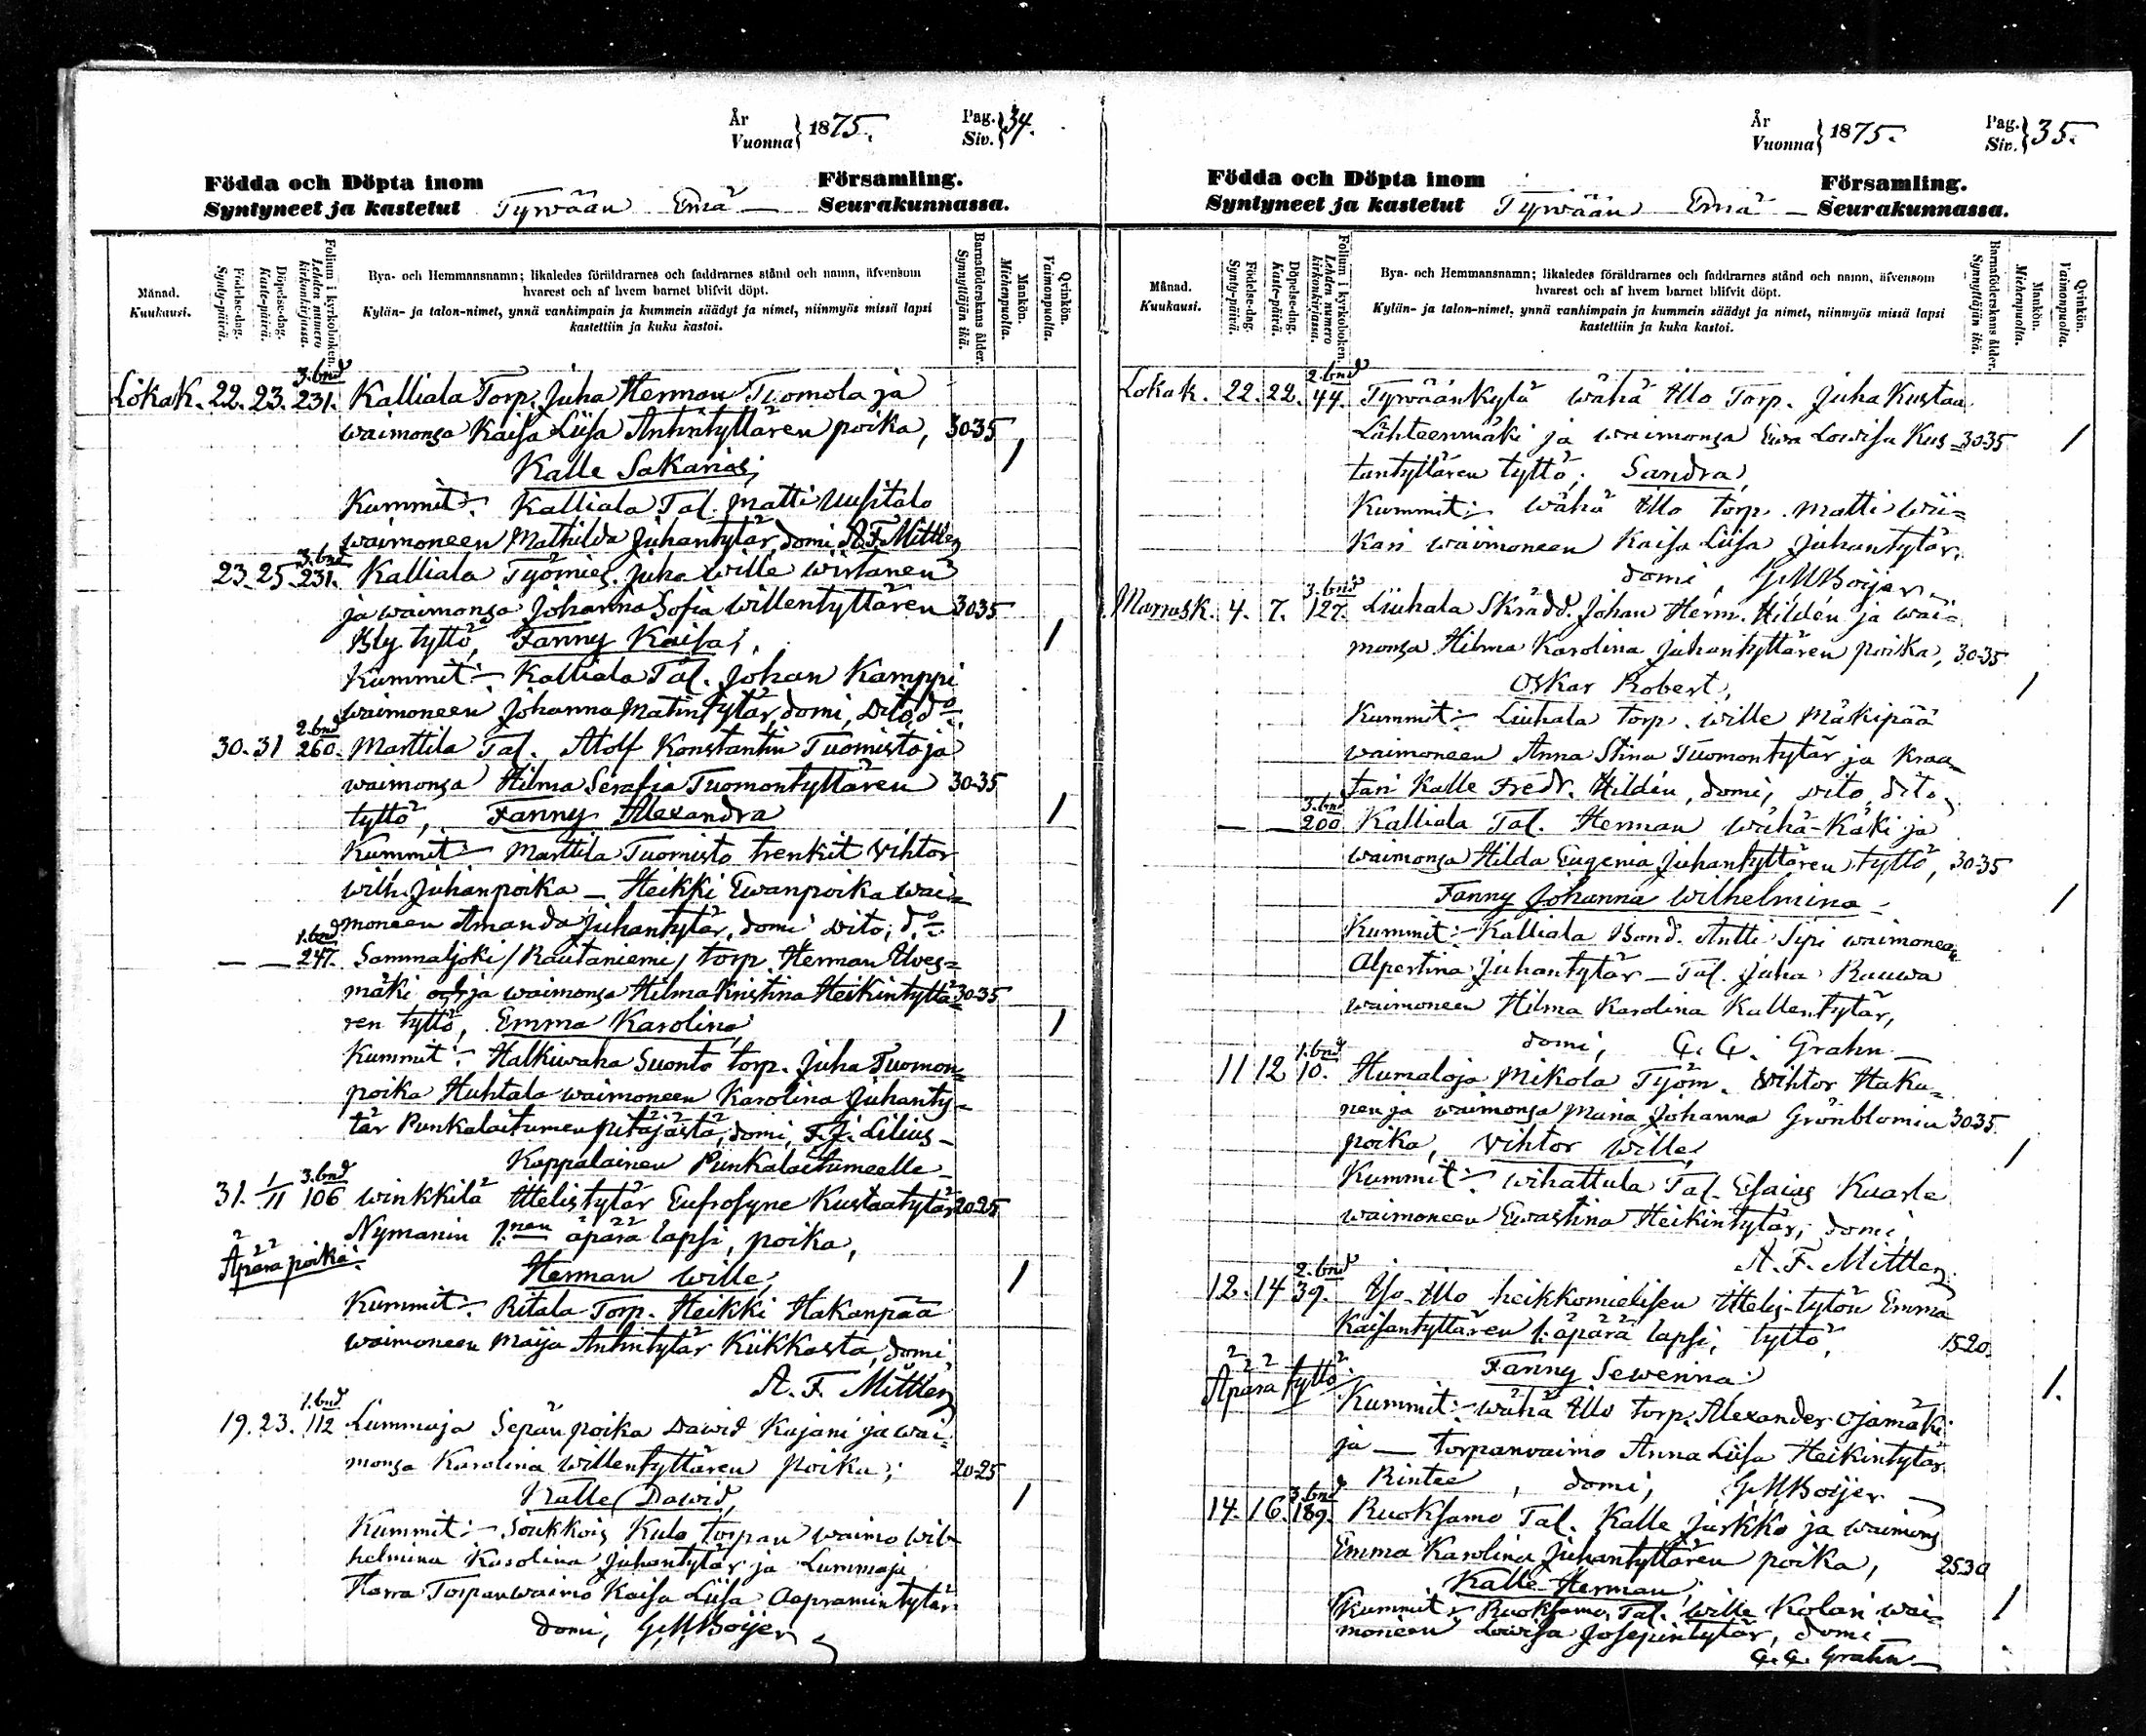 År
Vuonna } 1875.
Pag.
Siv. } 34.
Födda och Döpta inom
Församling.
Syntyneet ja kastetut Tyrwään Emä — Seurakunnassa.
Månad.
Kuukausi.
Födelse-dag.
Synty-päivä.
Döpelse-dag.
Kaste-päivä.
Folium i kyrkoboken.
Lehden numero kirkonkirjassa.
Bya- och Hemmansnamn; likaledes föräldrarnes och faddrarnes stånd och namn, äfvensom
hvarest och af hvem barnet blifvit döpt.
Kylän- ja talon-nimet, ynnä vanhimpain ja kummein säädyt ja nimet, niinmyös missä lapsi
kastettiin ja kuka kastoi.
Barnaföderskans ålder.
Synnyttäjän ikä.
Mankön.
Miehenpuolta.
Qvinkön.
Vaimonpuolta.
3. bnd
Lokak. 22. 23. 231. Kalliala Torp. Juha Herman Tuomola ja
waimonsa Kaisa Liisa Antintyttären poika, 30-35
Kalle Sakarias, /
Kummit:- Kalliala Tal. Matti Uusitalo
waimoneen Mathilda Juhantytär, domi A. F. Mittler
3. bnd
23. 25. 231. Kalliala Työmies. Juha Wille Wirtanen
ja waimonsa Johanna Sofia Willentyttären 30-35
Bly tyttö, Fanny Kaisa, /
Kummit:- Kalliala Tal. Johan Kamppi
waimoneen Johanna Matintytär, domi, dito, do
2. bnd
30. 31 260. Marttila Tal. Atolf Konstantin Tuomisto ja
waimonsa Hilma Serafia Tuomontyttären 30-35
tyttö, Fanny Alexandra /
Kummit:- Marttila Tuomisto trenkit Vihtor
Wilh. Juhanpoika — Heikki Ewanpoika wai=
moneen Amanda Juhantytär, domi dito, do
1. bnd
— — 247. Sammaljoki / Rautaniemi / torp. Herman Alves=
mäki och ja waimonsa Hilma Kristina Heikintyttä= 30-35
ren tyttö, Emma Karolina, /
Kummit:- Halkiwaha Suonto torp. Juha Tuomon=
poika Huhtala waimoneen Karolina Juhanty=
tär Punkalaitumen pitäjästä, domi, F. J. Lilius —
Kappalainen Punkalaitumeelle
3. bnd
31. 1/11 106 Winkkilä Ittelistytär Eufrosyne Kustaatytär 20-25
Nymanin 1.nen äpärä lapsi, poika,
Äpärä poika.
Herman Wille, /
Kummit:- Ritala Torp. Heikki Hakanpää
waimoneen Maija Antintytär Kiikkasta, domi
A. F. Mittler
1. bnd
19. 23. 112 Lummaja Sepän poika Dawid Kajani ja wai=
monsa Karolina Willentyttären poika; 20-25
Kalle Dawid, /
Kummit:- Soukkois Kulo torpan waimo Wil-
helmina Karolina Juhantytär ja Lummaja
Harra Torpanwaimo Kaisa Liisa Aapramintytär
domi, G. M. Boijer
År
Vuonna } 1875.
Pag.
Siv. } 35.
Födda och Döpta inom
Församling.
Syntyneet ja kastetut Tyrwään Emä — Seurakunnassa.
Månad.
Kuukausi.
Födelse-dag.
Synty-päivä.
Döpelse-dag.
Kaste-päivä.
Folium i kyrkoboken.
Lehden numero kirkonkirjassa.
Bya- och Hemmansnamn; likaledes föräldrarnes och faddrarnes stånd och namn, äfvensom
hvarest och af hvem barnet blifvit döpt.
Kylän- ja talon-nimet, ynnä vanhimpain ja kummein säädyt ja nimet, niinmyös missä lapsi
kastettiin ja kuka kastoi.
Barnaföderskans ålder.
Synnyttäjän ikä.
Mankön.
Miehenpuolta.
Qvinkön.
Vaimonpuolta.
2. bnd
Lokak. 22. 22. 44. Tyrwäänkylä Wähä Illo Torp. Juha Kustaa
Lähteenmäki ja waimonsa Ewa Lowisa Kus= 30-35 /
tantyttären tyttö; Sandra,
Kummit:- Wähä Illo torp. Matti Wii=
kari waimoneen Kaisa Liisa Juhantytär,
domi, G. M. Boijer
3. bnd
Marrask. 4. 7. 127. Liuhala Skrädd. Johan Herm. Hildén ja wai=
monsa Hilma Karolina Juhantyttären poika, 30-35
Oskar Robert, /
Kummit:- Liuhala torp. Wille Mäkipää
waimoneen Anna Stina Tuomontytär ja Kraa=
tari Kalle Fredr. Hildén, domi, dito, dito,
3. bnd
— — 200 Kalliala Tal. Herman Wähä-Käki ja
waimonsa Hilda Eugenia Juhantyttären tyttö, 30-35
Fanny Johanna Wilhelmina — /
Kummit:- Kalliala Bond. Antti Sipi waimoneen
Alpertina Juhantytär — Tal. Juha Rauwa
waimoneen Hilma Karolina Kallentytär,
domi, G. G. Grahn —
1. bnd
11 12 10. Humaloja Mikola Työm. Vihtor Haku=
nen ja waimonsa Maria Johanna Grönblomin 30-35
poika, Vihtor Wille, /
Kummit:- Wihattula Tal. Esaias Kuarla
waimoneen Ewastina Heikintytär, domi,
A. F. Mittler
2. bnd
12. 14 39. Iso-Illo heikkomielisen Ittelis-tytön Emma
Kaisantyttären 1. äpärä lapsi, tyttö, 15-20.
Äpärä tyttö.
Fanny Sewerina /.
Kummit:- Wähä Illo torp. Alexander Ojamäki
ja — torpanvaimo Anna Liisa Heikintytär
Rintee, domi, G. M. Boijer —
3. bnd
14. 16. 189. Ruoksamo Tal. Kalle Jurkko ja waimons
Emma Karolina Juhantyttären poika, 25-30
Kalle Herman, /
Kummit:- Ruoksamo Tal. Wille Kolari wai=
moneen Lowisa Josepintytär, domi
G. G. Grahn —